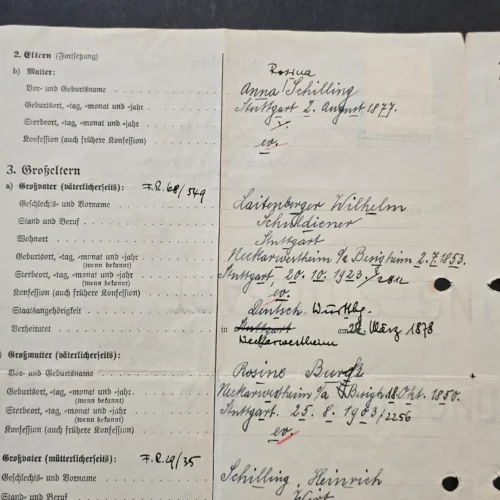 2. Eltern (Fortsetzung)
b) Mutter: Rosina
Vor- und Geburtsname Anna Schilling
Geburtsort, -tag, -monat und -jahr Stuttgart 2. August 1877.
Sterbeort, -tag, -monat und -jahr
Konfession (auch frühere Konfession) ev.
3. Großeltern
a) Großvater (väterlicherseits): F.R. 68/549
Geschlechts- und Vorname Laitenberger Wilhelm
Stand und Beruf Schuldiener
Wohnort Stuttgart
Geburtsort, -tag, -monat und -jahr Neckarwestheim 2.7.1853.
(wenn bekannt)
Sterbeort, -tag, -monat und -jahr Stuttgart, 20.10.1923
(wenn bekannt)
Konfession (auch frühere Konfession) ev.
Staatsangehörigkeit Deutsch. Württbg.
Verheiratet in Stuttgart am 28. März 1878
Neckarwestheim
) Großmutter (väterlicherseits):
Vor- und Geburtsname Rosine
Geburtsort, -tag, -monat und -jahr Neckarwestheim 18. Okt. 1850.
(wenn bekannt)
Sterbeort, -tag, -monat und -jahr Stuttgart. 25.8.1903/2256
(wenn bekannt)
Konfession (auch frühere Konfession) ev.
Großvater (mütterlicherseits): F.R. 29/35
Geschlechts- und Vorname Schilling, Heinrich
Stand- und Beruf Wirt